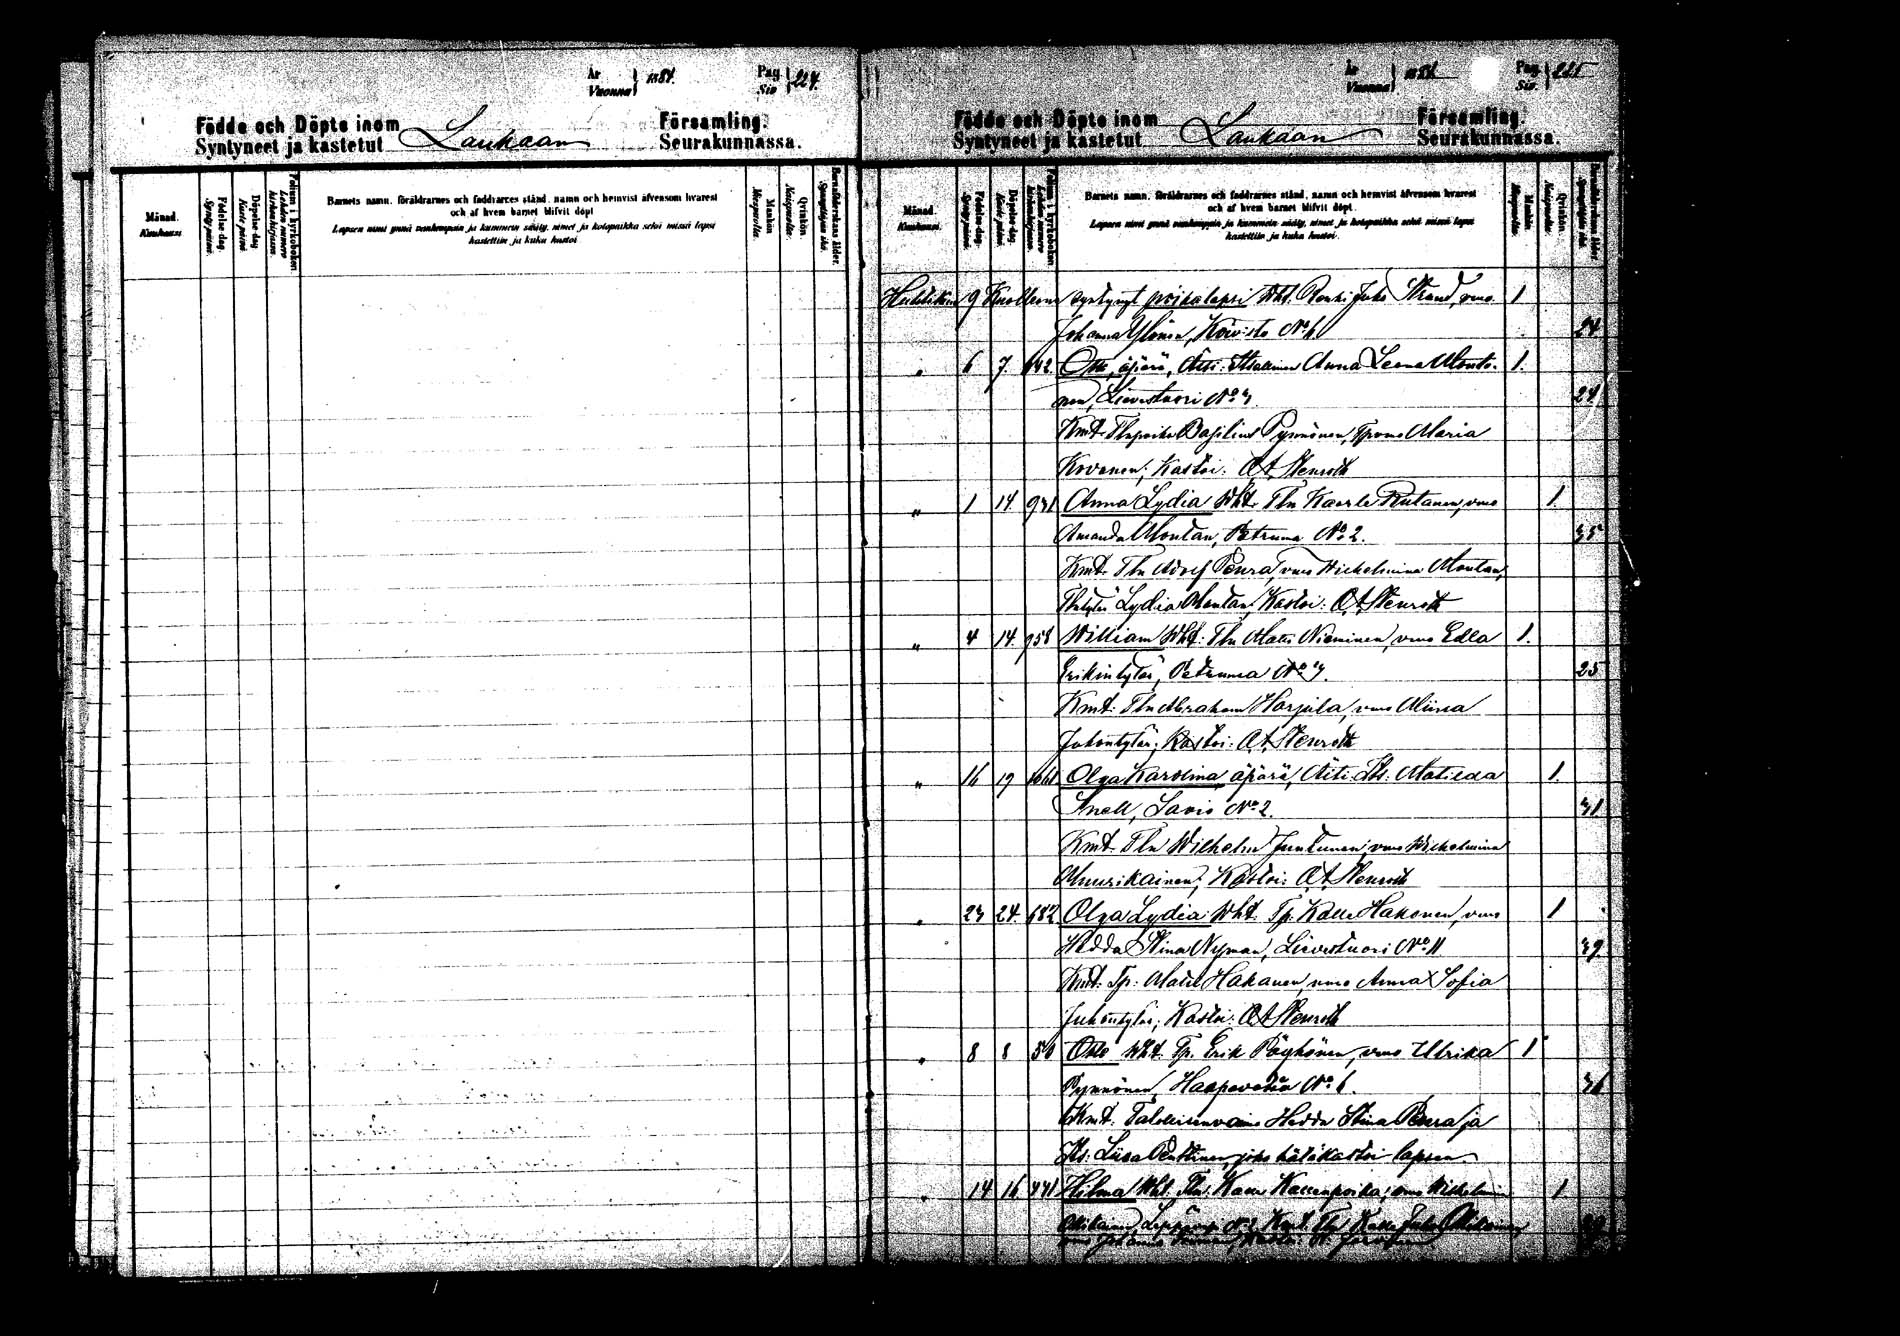 År Vuonna } 1884. Pag. Siv. } 224.
Födde och Döpte inom Församling.
Syntyneet ja kastetut Laukaan Seurakunnassa.
Månad. Kuukausi
Födelse-dag. Syntypäivä.
Döpelse-dag. Kaste päivä
Folium i kyrkoboken. Lehden numero kirkonkirjassa.
Barnets namn, föräldrarnes och faddrarnes stånd, namn och hemvist äfvensom hvarest
och af hvem barnet blifvit döpt.
Lapsen nimi ynnä vanhempain ja kummein sääty, nimet ja kotopaikka sekä missä lapsi
kastettiin ja kuka kastoi
Mankön. Miespuolta.
Qvinkön. Naispuolta.
Barnaföderskans ålder. Synnyttäjän ikä.
År Vuonna } 1884 Pag. Siv. } 225
Födde och Döpte inom Församling.
Syntyneet ja kastetut Laukaan Seurakunnassa.
Månad. Kuukausi
Födelse-dag. Syntypäivä.
Döpelse-dag. Kaste päivä
Folium i kyrkoboken. Lehden numero kirkonkirjassa.
Barnets namn, föräldrarnes och faddrarnes stånd, namn och hemvist äfvensom hvarest
och af hvem barnet blifvit döpt.
Lapsen nimi ynnä vanhempain ja kummein sääty, nimet ja kotopaikka sekä missä lapsi
kastettiin ja kuka kastoi.
Mankön. Miespuolta.
Qvinkön. Naispuolta.
Barnaföderskans ålder Synnyttäjän ikä.
Huhtikuu 9 Kuolleena syntynyt poikalapsi Wht. Renki Juho Strand, vmo 1
Johanna Ylönen, Koivisto No 6 24
" 6 7. 642 Otto, äpärä, Äiti: Itsellinen Anna Leena Monto- 1.
nen, Lievestuori No 3. 24
Kmt. Basilius Pynnönen, Maria
Kovanen; Kastoi: O.A. Stenroth
" 1 14. 931 Anna Lydia Wht. Tln Kaarle Rutanen, vmo 1.
Amanda Montan, Petruma No 2. 35
Kmt. Tln Adolf Peura, vmo Wilhelmina Montan,
Lydia Montan, Kastoi: O.A. Stenroth
" 4 14. 958 William Wht: Tln Matts Nieminen, vmo Edla 1.
Erikintytär, Petruma No 7. 25
Kmt: Tln Abraham Harjula, vmo Miina
Juhontytär; Kastoi: O.A. Stenroth
" 16 19 1061 Olga Karolina, äpärä, Äiti: Its: Matilda 1.
Snell, Savio No 2. 31
Kmt. Tln Wilhelm Juntunen, vmo Wilhelmina
Muurikainen; Kastoi: O.A. Stenroth
" 23 24. 682 Olga Lydia Wht. Tp. Kalle Hakonen, vmo 1
Hedda Stina Nyman, Lievestuori No 11 39.
Kmt: Tp: Matti Hakanen, vmo Anna Sofia
Juhontytär; Kastoi: O.A. Stenroth
" 8 8 50 Otto Wht. Tp. Erik Pöyhönen, vmo Ulrika 1
Pynnönen, Haapavatia No 6. 36
Kmt. Talollisenvaimo Hedda Stina Peura ja
Its. Liisa Penttinen, joka hätäkastoi lapsen.
" 14 16 441 Hilma Wht. Tln. Kallenpoika, vmo Wilhelmiina 1
No 2 Kmt. Tln Kalle Juho
vmo Johanna Kastoi: